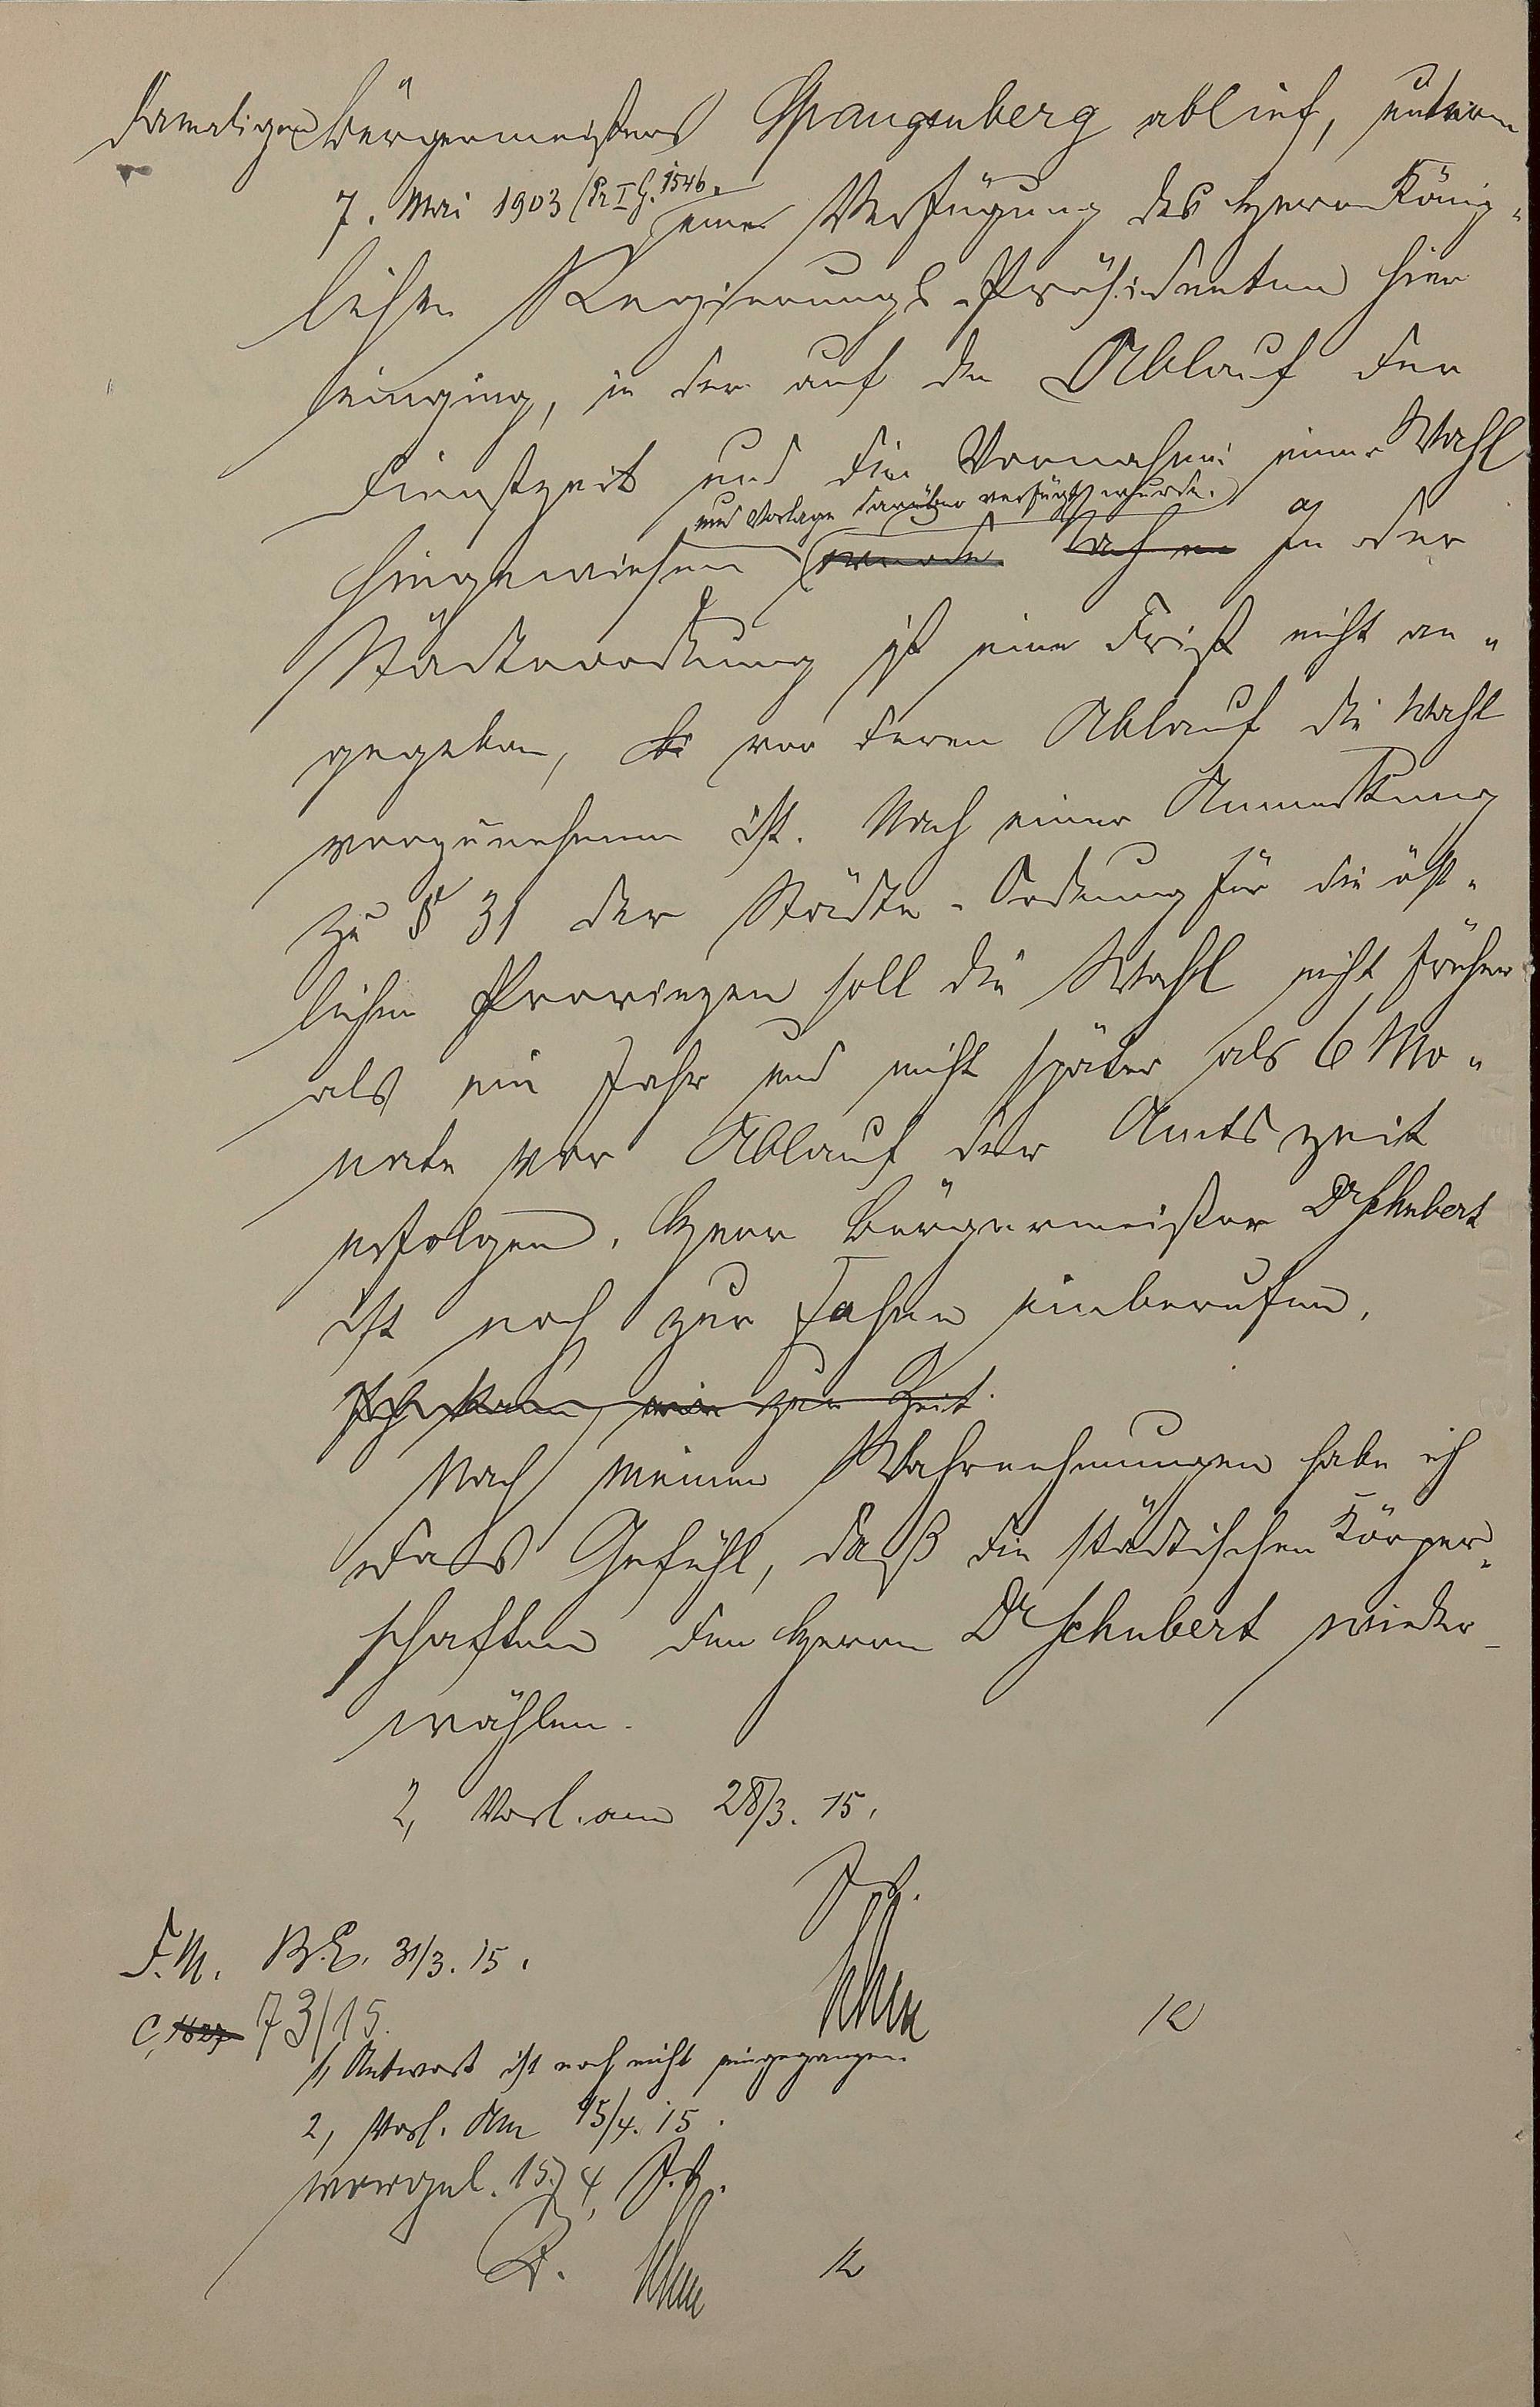 damaligen Bürgermeisters Spangenberg ablief, unterm
7. Mai 1903 (Pr I G. 1546.
eine Verfügung des Herrn König-
lichen Regierungs-Präsidenten hier
einging, in der auf den Ablauf der
Dienstzeit und die Vornahme einer Wahl
und Vorlage darüber verfügt wurde.
hingewiesen wurde In der
Städteordnung ist eine Frist nicht an-
gegeben, vor deren Ablauf die Wahl
vorzunehmen ist. Nach einer Anmerkung
zu § 31 der Städte-Ordnung für die öst-
lichen Provinzen soll die Wahl nicht früher
als ein Jahr und nicht später als 6 Mo-
nate vor Ablauf der Amtszeit
erfolgen. Herr Bürgermeister Dr Schubert
ist noch zur Fahne einberufen.
Ich kann zur Zeit
Nach meinen Wahrnehmungen habe ich
das Gefühl, daß die städtischen Körper-
schaften den Herrn Dr Schubert wieder-
wählen.
2, Vorl. am 28/3. 15.
F.M. B.E. 31/3. 15.
C, 73/15.
1, Antwort ist noch nicht eingegangen
2, Vorl. am 15/4. 15.
vorgel. 15/4.